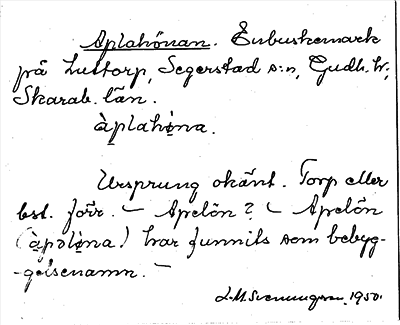 Aplahönan. Enbuskemark
på Luttorp, Segerstad s:n, Gudh. hr,
Skarab. län.
àplahø̀na.
Ursprung okänt. Torp eller
bst. förr. – Apelön? – Apelön
(àpəlø̀na!) har funnits som bebyg-
-gelsenamn. –
L. M. Svenungson. 1950.